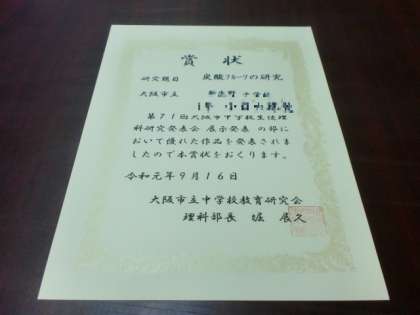 賞状
研究題目 炭酸フルーツの研究
大阪市立 中学校
1年
第71回大阪市中学校生徒理
科研究発表会 展示発表 の部に
おいて優れた作品を発表されま
したので本賞状をおくります。
令和元年9月16日
大阪市立中学校教育研究会
理科部長 堀 展久